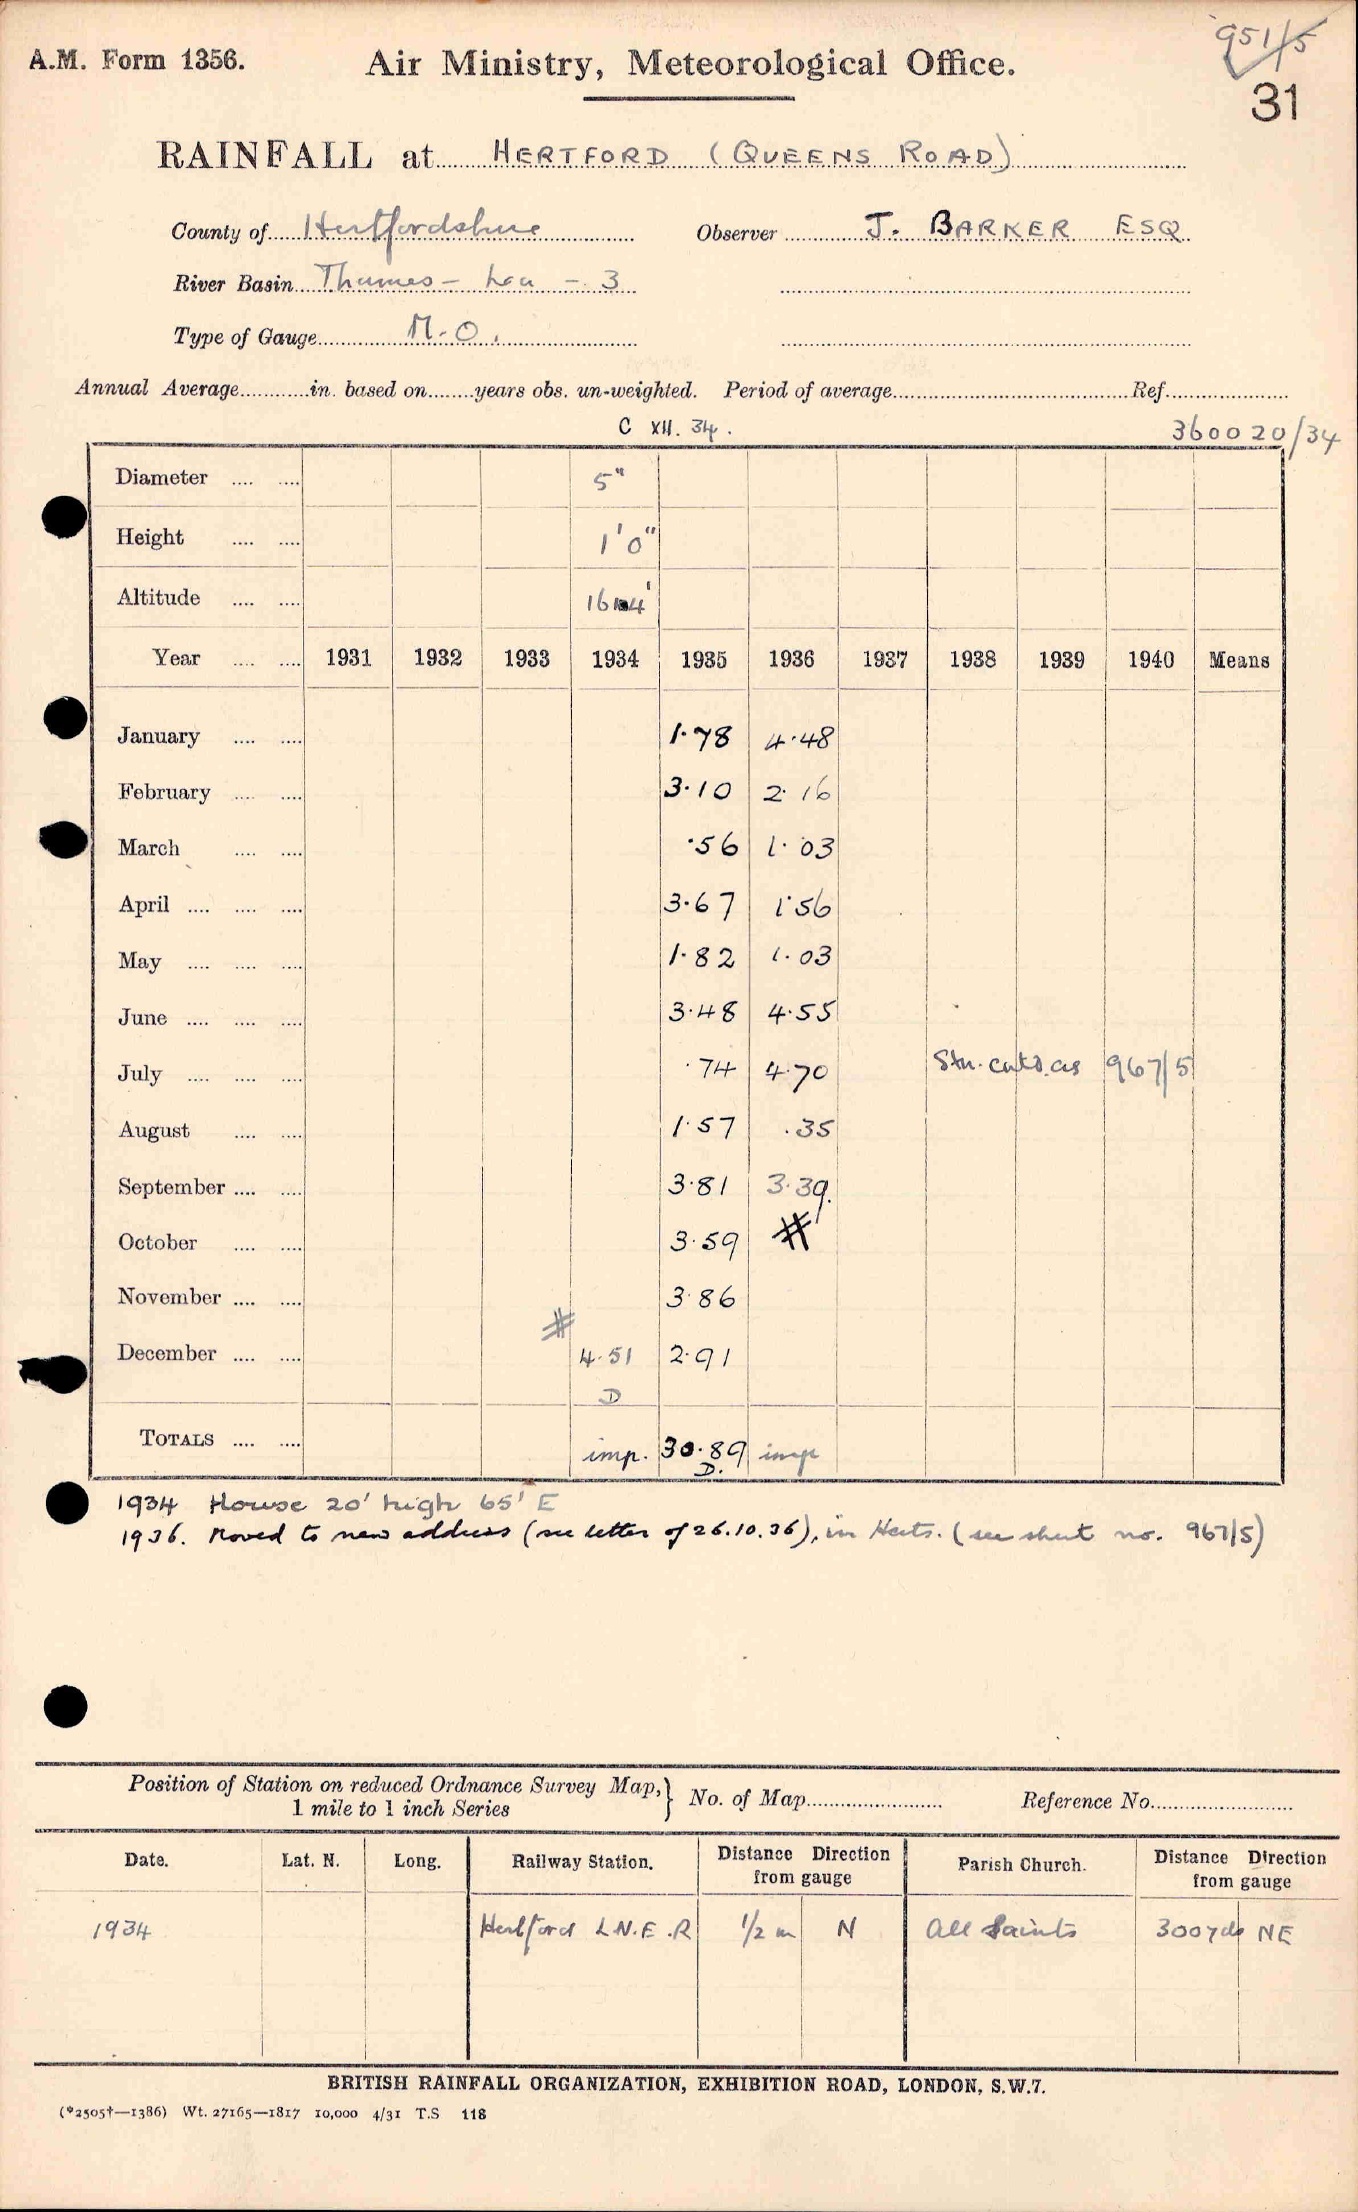 951/5
A.M. Form 1356. Air Ministry, Meteorological Office.
31
RAINFALL at HERTFORD (QUEENS ROAD)
County of Hertfordshire Observer J. BARKER ESQ
River Basin Thames – Lea – 3
Type of Gauge M.O.
Annual Average in. based on years obs. un-weighted. Period of average Ref.
C XII. 34. 360020/34
Diameter 5"
Height 1'0"
Altitude 164'
Year 1931 1932 1933 1934 1935 1936 1937 1938 1939 1940 Means
January 1.78 4.48
February 3.10 2.16
March .56 1.03
April 3.67 1.56
May 1.82 1.03
June 3.48 4.55
July .74 4.70 Stn. contd. as 967/5
August 1.57 .35
September 3.81 3.39
October 3.59 #
November 3.86
# December 4.51 2.91
D
TOTALS imp. 30.89 imp
D.
1934 House 20' high 65' E
1936. Moved to new address (see letter of 26.10.36), in Herts. (see sheet no. 967/5)
Position of Station on reduced Ordnance Survey Map, 1 mile to 1 inch Series } No. of Map Reference No.
Date. Lat. N. Long. Railway Station. Distance Direction from gauge Parish Church. Distance Direction from gauge
1934 Hertford L.N.E.R 1/2 m N All Saints 300 yds NE
BRITISH RAINFALL ORGANIZATION, EXHIBITION ROAD, LONDON, S.W.7.
(*2505†—1386) Wt. 27165—1817 10,000 4/31 T.S 118